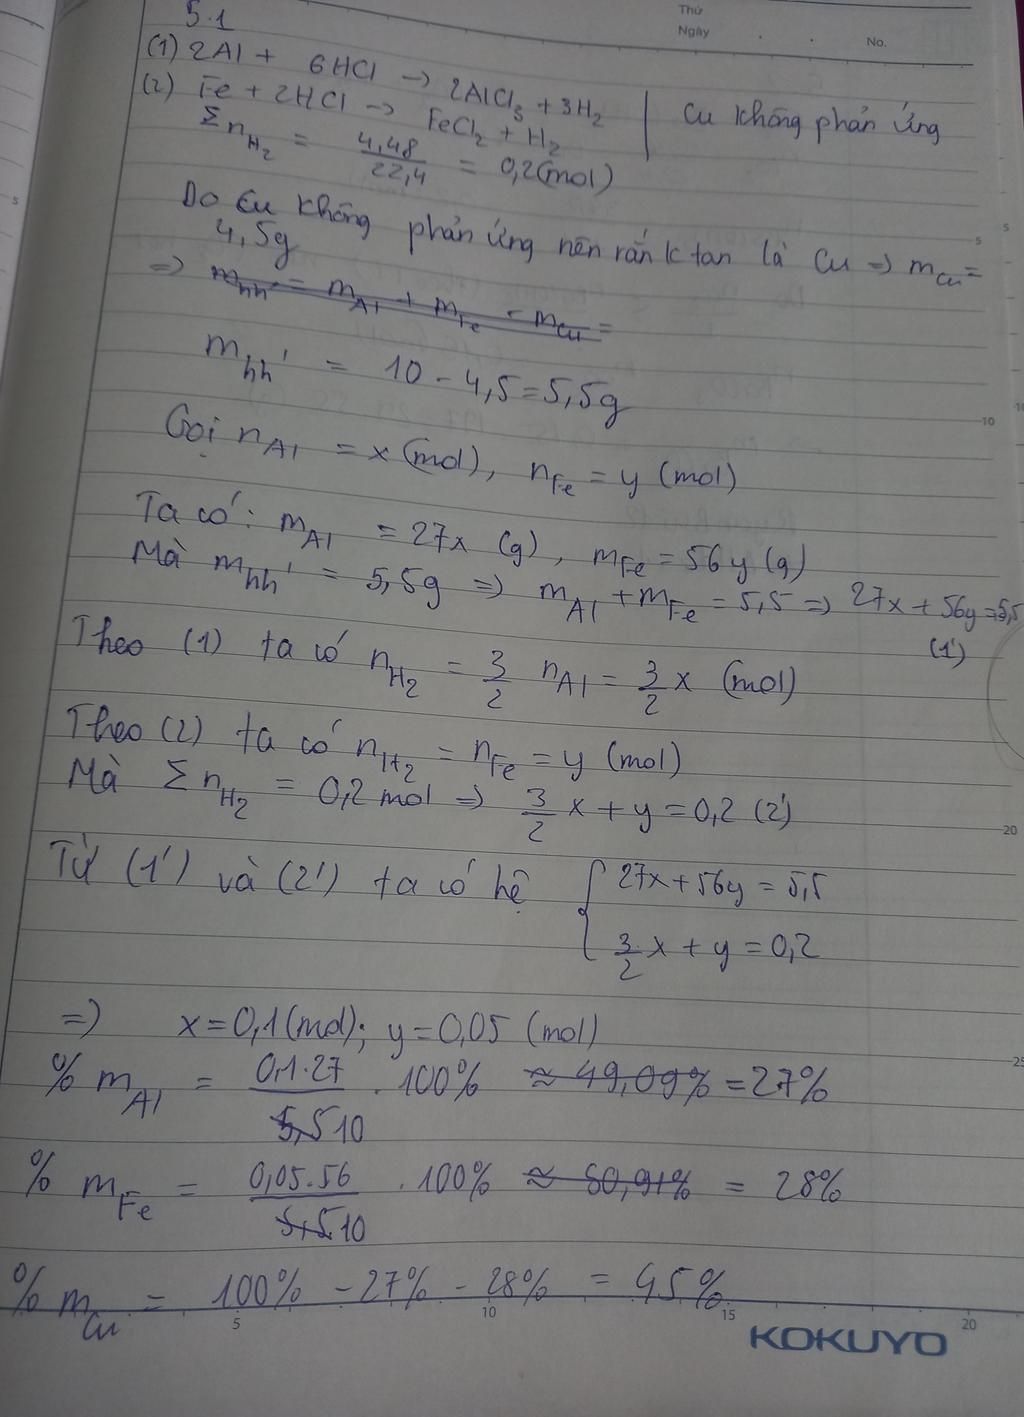 Thứ
Ngày . . No.
5.1
(1) 2Al + 6HCl → 2AlCl3 + 3H2
(2) Fe + 2HCl → FeCl2 + H2
Cu không phản ứng
Σ nH2 = 4,48/22,4 = 0,2(mol)
Do Cu không phản ứng nên rắn k tan là Cu => mCu =
4,5g
=> mhh' = mAl + mFe - mCu =
mhh' = 10 - 4,5 = 5,5g
Gọi nAl = x (mol), nFe = y (mol)
Ta có: mAl = 27x (g), mFe = 56y (g)
Mà mhh' = 5,5g => mAl + mFe = 5,5 => 27x + 56y = 5,5
(1')
Theo (1) ta có nH2 = 3/2 nAl = 3/2 x (mol)
Theo (2) ta có nH2 = nFe = y (mol)
Mà Σ nH2 = 0,2 mol => 3/2 x + y = 0,2 (2')
Từ (1') và (2') ta có hệ { 27x + 56y = 5,5
3/2 x + y = 0,2
=> x = 0,1 (mol); y = 0,05 (mol)
% mAl = 0,1.27 / 5,5 10 . 100% ≈ 49,09% = 27%
% mFe = 0,05.56 / 5,5 10 . 100% ≈ 50,91% = 28%
% mCu = 100% - 27% - 28% = 45%
5 10 15 20
KOKUYO